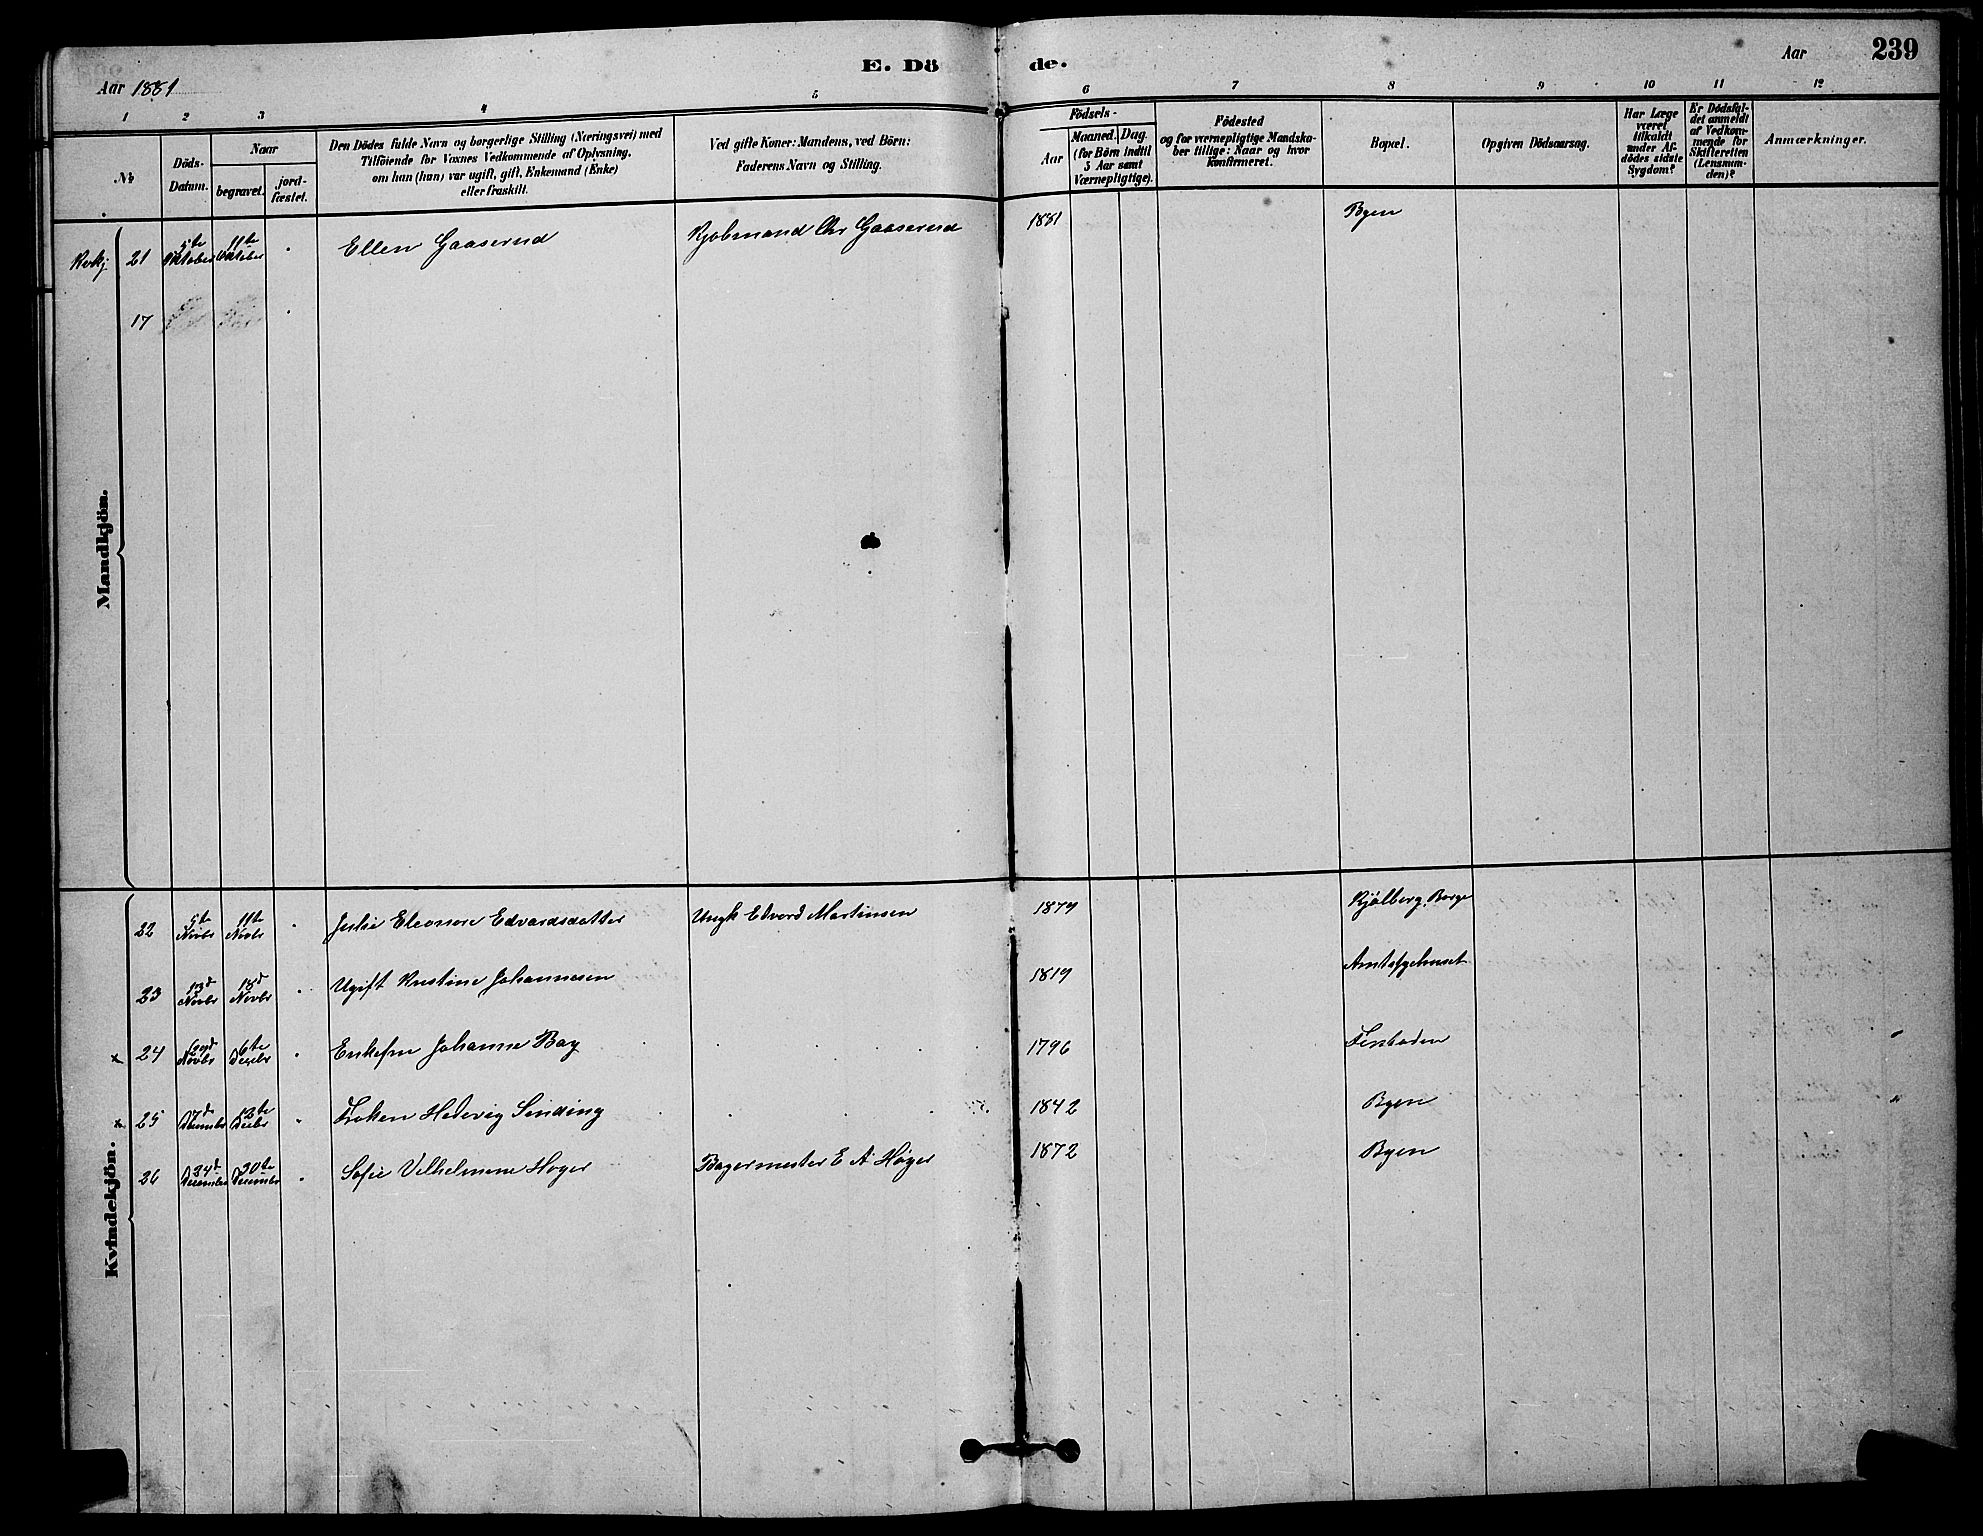 E. Dö de.
239
Aar 1881
Aar
1 2 3 4 5 6 7 8 9 10 11 12
№
Döds-Datum.
Naar
begravet.
jord-fæstet.
Den Dödes fulde Navn og borgerlige Stilling (Næringsvei) med
Tilföiende for Voxnes Vedkommende af Oplysning,
om han (hun) var ugift, gift, Enkemand (Enke)
eller fraskilt.
Ved gifte Koner: Mandens, ved Börn:
Faderens Navn og Stilling.
Födsels-
Aar
Maaned. Dag.
(for Börn indtil
5 Aar samt
Værnepligtige).
Födested
og for værnepligtige Mandska-
ber tillige: Naar og hvor
konfirmeret.
Bopæl.
Opgiven Dödsaarsag.
Har Læge
været
tilkaldt
under Af-
dödes sidste
Sygdom?
Er Dödsfal-
det anmeldt
af Vedkom-
mende for
Skifteretten
(Lensman-
den)?
Anmærkninger.
Mandkjön.
21 5te Oktober 11te Oktober Ellen Gaaserud Kjøbmand Chr Gaaserud 1881 Byen
17
Kvindekjön.
22 5te Novbr 11te Novbr Julie Eleonore Edvardsdatter Ungk Edvard Martinsen 1879 Kjølberg, Borge
23 13d Novbr 18d Novbr Ugift Kristine Johannesen 1819 Amtssygehuset
x 24 Novbr 6te Decbr Enkefru Johanne Bay 1796
x 25 7d Decembr 13te Decbr Frøken Hedevig Sinding 1842 Byen
26 24d December 30te December Sofie Vilhelmine Høyer Bagermester E A Høyer 1872 Byen